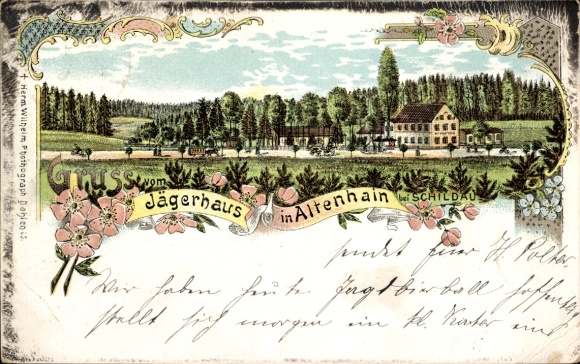 Gruss vom
Jägerhaus in Altenhain
b. SCHILDAU
† Herm. Wilhelm, Photograph Dahlen i. S.
sendet
Wir haben heute Jagdbierball hoffentl
stellt sich morgen ein kl. Kater ein